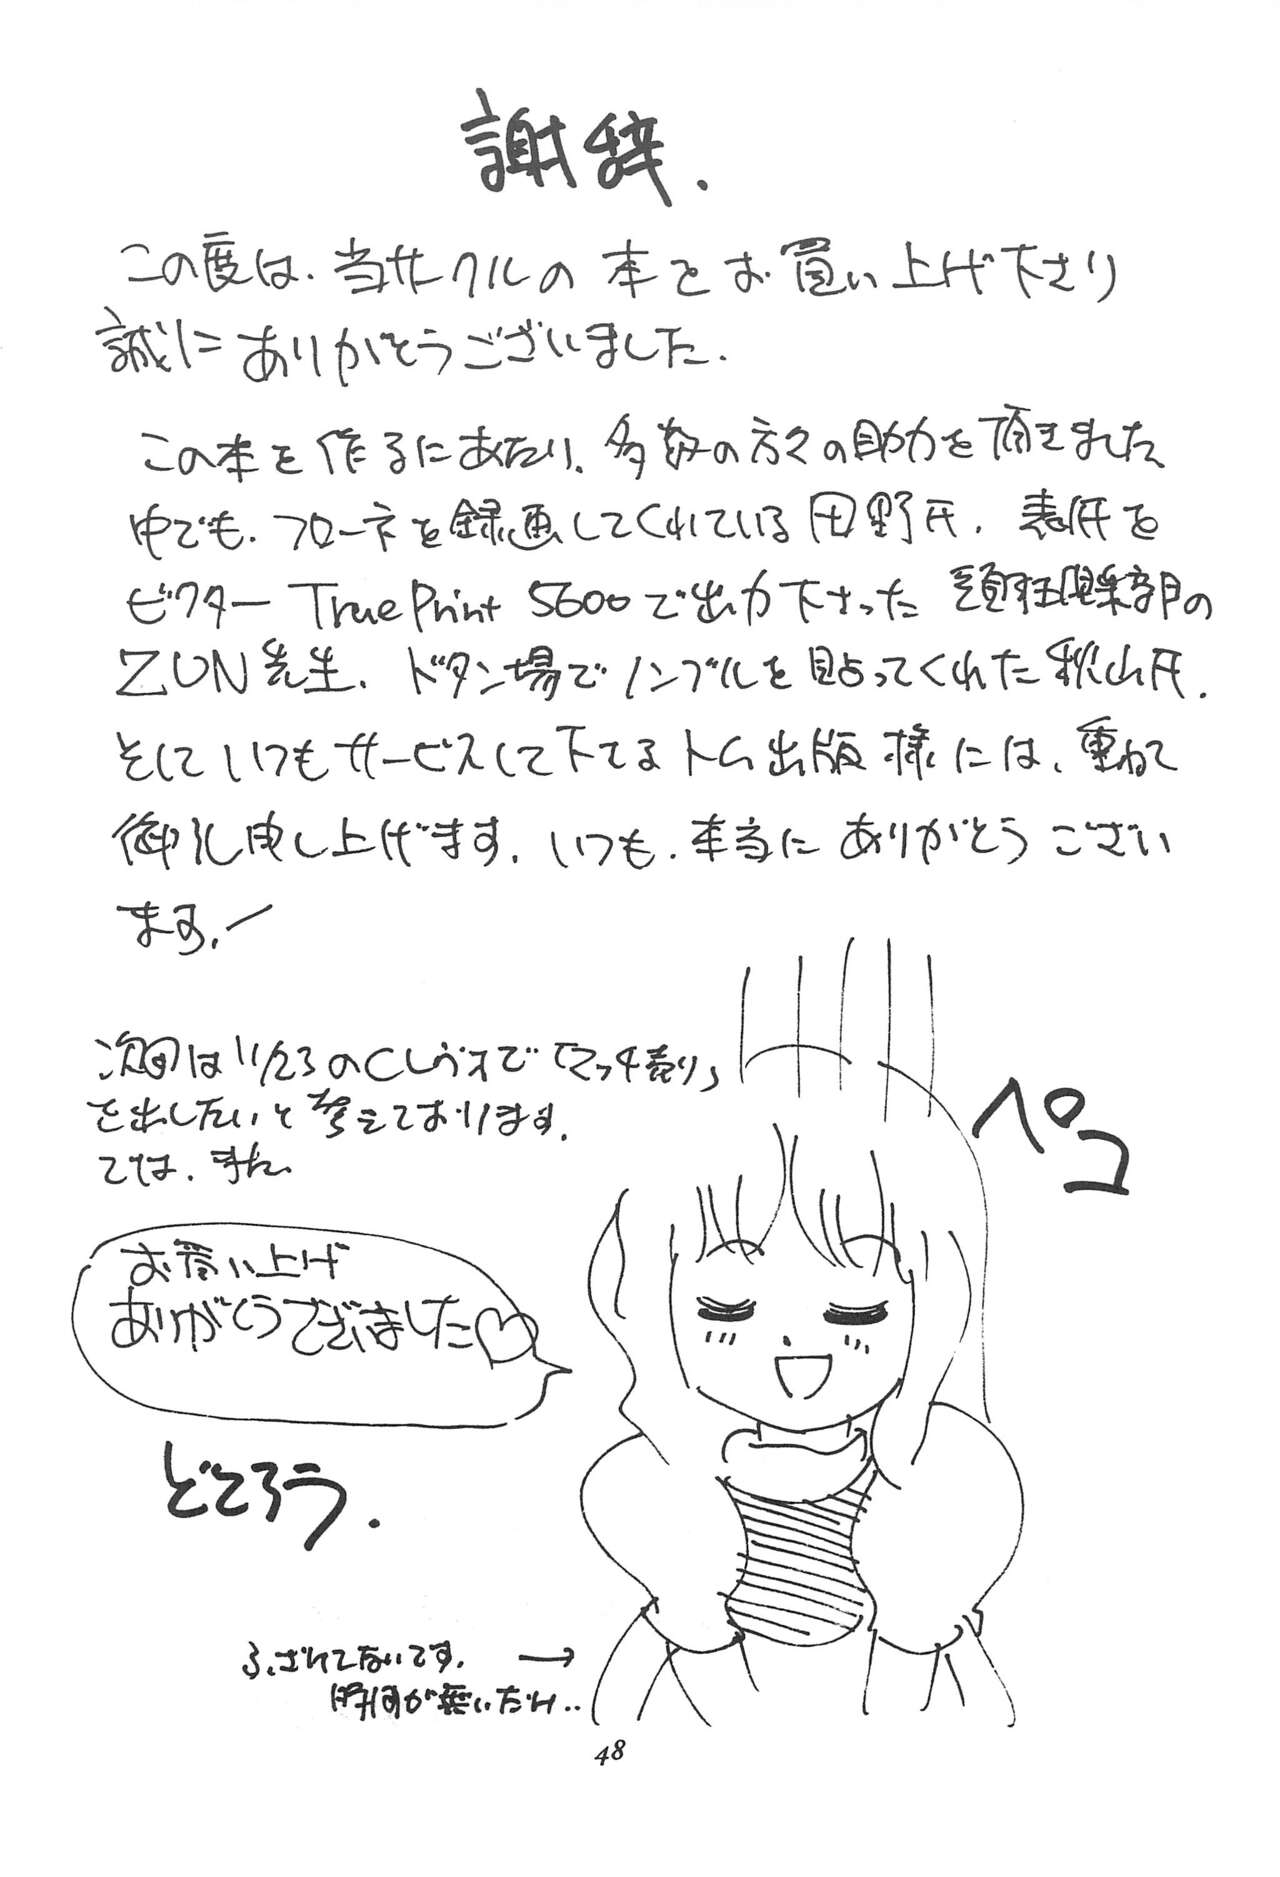 謝辞.
この度は、当サークルの本をお買い上げ下さり
誠にありがとうございました.
この本を作るにあたり、多数の方々の助力を頂きました
中でも、フローネを録画してくれている田野氏、表紙を
ビクター TruePrint 5600で出力下さった 頭狂倶楽部の
ZUN先生、ドタン場でノンブルを貼ってくれた秋山氏.
そしていつもサービスして下てるトム出版様には、重ねて
御礼申し上げます. いつも、本当にありがとうござい
ます.
次回は11/23のCレヴォで「マッチ売り」
を出したいと考えております.
では、また
ペコ
お買い上げ
ありがとうございました♡
どどろう.
ふざけてないです. →
時間が無いだけ..
48